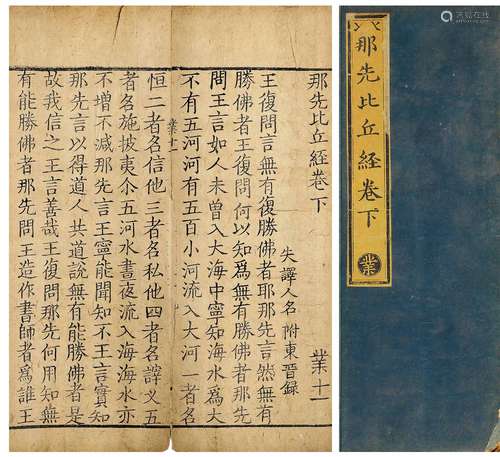 那先比丘経卷下
業
那先比丘經卷下 業十一
失譯人名附東晉錄
王復問言無有復勝佛者耶那先言然無有
勝佛者王復問何以知爲無有勝佛者那先
問王言如人未曾入大海中寧知海水爲大
不有五河河有五百小河流入大河一者名
業十一
恒二者名信他三者名私他四者名諱义五
者名施披夷尒五河水晝夜流入海海水亦
不增不減那先言王寧能聞知不王言實知
那先言以得道人共道說無有能勝佛者是
故我信之王言善哉王復問那先何用知無
有能勝佛者那先問王造作書師者爲誰王